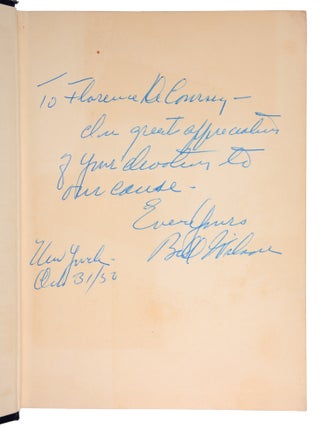 To Florence DeCoursey —
In great appreciation
of your devotion to
our cause -
Ever Yours
Bill Wilson
New York -
31/50